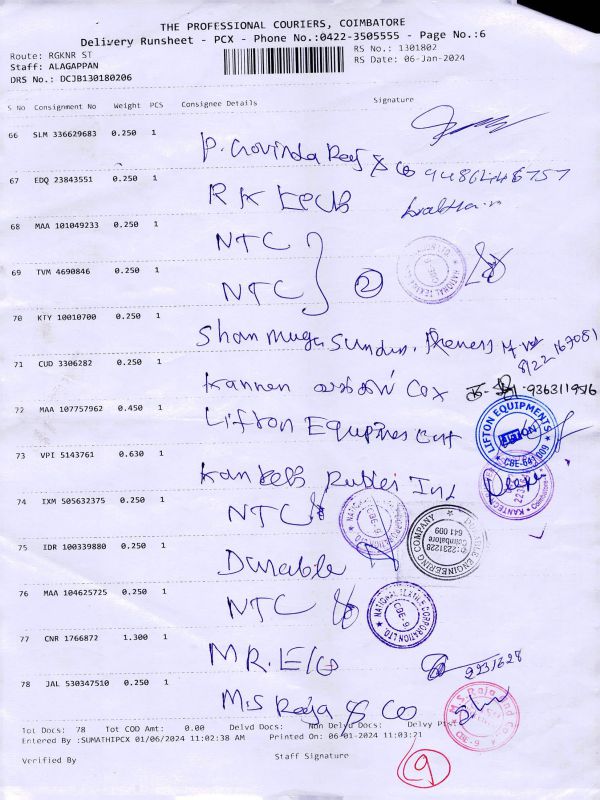 THE PROFESSIONAL COURIERS, COIMBATORE
Delivery Runsheet - PCX - Phone No.:0422-3505555 - Page No.:6
Route: RGKNR ST
RS No.: 1301802
Staff: ALAGAPPAN
RS Date: 06-Jan-2024
DRS No.: DCJB130180206
S No Consignment Weight PCS Consignee Details Signature
66 SLM 336629683 0.250 1
P. Govinda Raj & Co
67 EDQ 23843551 0.250 1
RK Tech
68 MAA 101049233 0.250 1
NTC
69 TVM 4690846 0.250 1
NTC 2
NATIONAL
70 KTY 10010700 0.250 1
Shanmuga Sundar.
71 CUD 3306282 0.250 1
8/22 167081
Kannan Cox
9363119516
72 MAA 107757962 0.450 1
Lifton
LIFTON EQUIPMENTS
CBE-641 009
73 VPI 5143761 0.630 1
Rubber Ind
74 IXM 505632375 0.250 1
NTC
CBE-9
75 IDR 100339880 0.250 1
Durable
ENGINEERING COMPANY
:2231228
Coimbatore
641 009
76 MAA 104625725 0.250 1
NTC
NATIONAL TEXTILE CORPORATION LTD
CBE-9
77 CNR 1766872 1.300 1
MR. Ele
2231628
78 JAL 530347510 0.250 1
M.S Raja & Co
M.S. Raja and Co.
CBE-9
Tot Docs: 78 Tot COD Amt: 0.00 Delvd Docs: Non Delvd Docs: Delvy
Entered By :SUMATHIPCX 01/06/2024 11:02:38 AM Printed On: 06-01-2024 11:03:21
Verified By
Staff Signature
9